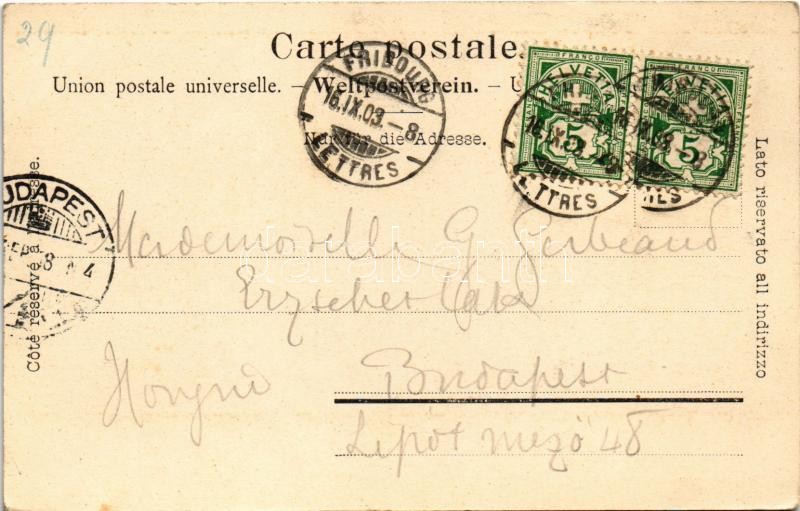 29
Carte postale.
Union postale universelle. — Weltpostverein. — U
Nur für die Adresse.
Côté réservé à
Lato riservato all indirizzo
FRIBOURG
16.IX.03.–8
LETTRES
FRANCO
HELVETIA
5
16.IX.
LETTRES
FRANCO
HELVETIA
5
BUDAPEST
Mademoiselle G Gerbeaud
Hongrie
Budapest
Lipót mező 48
darabanth